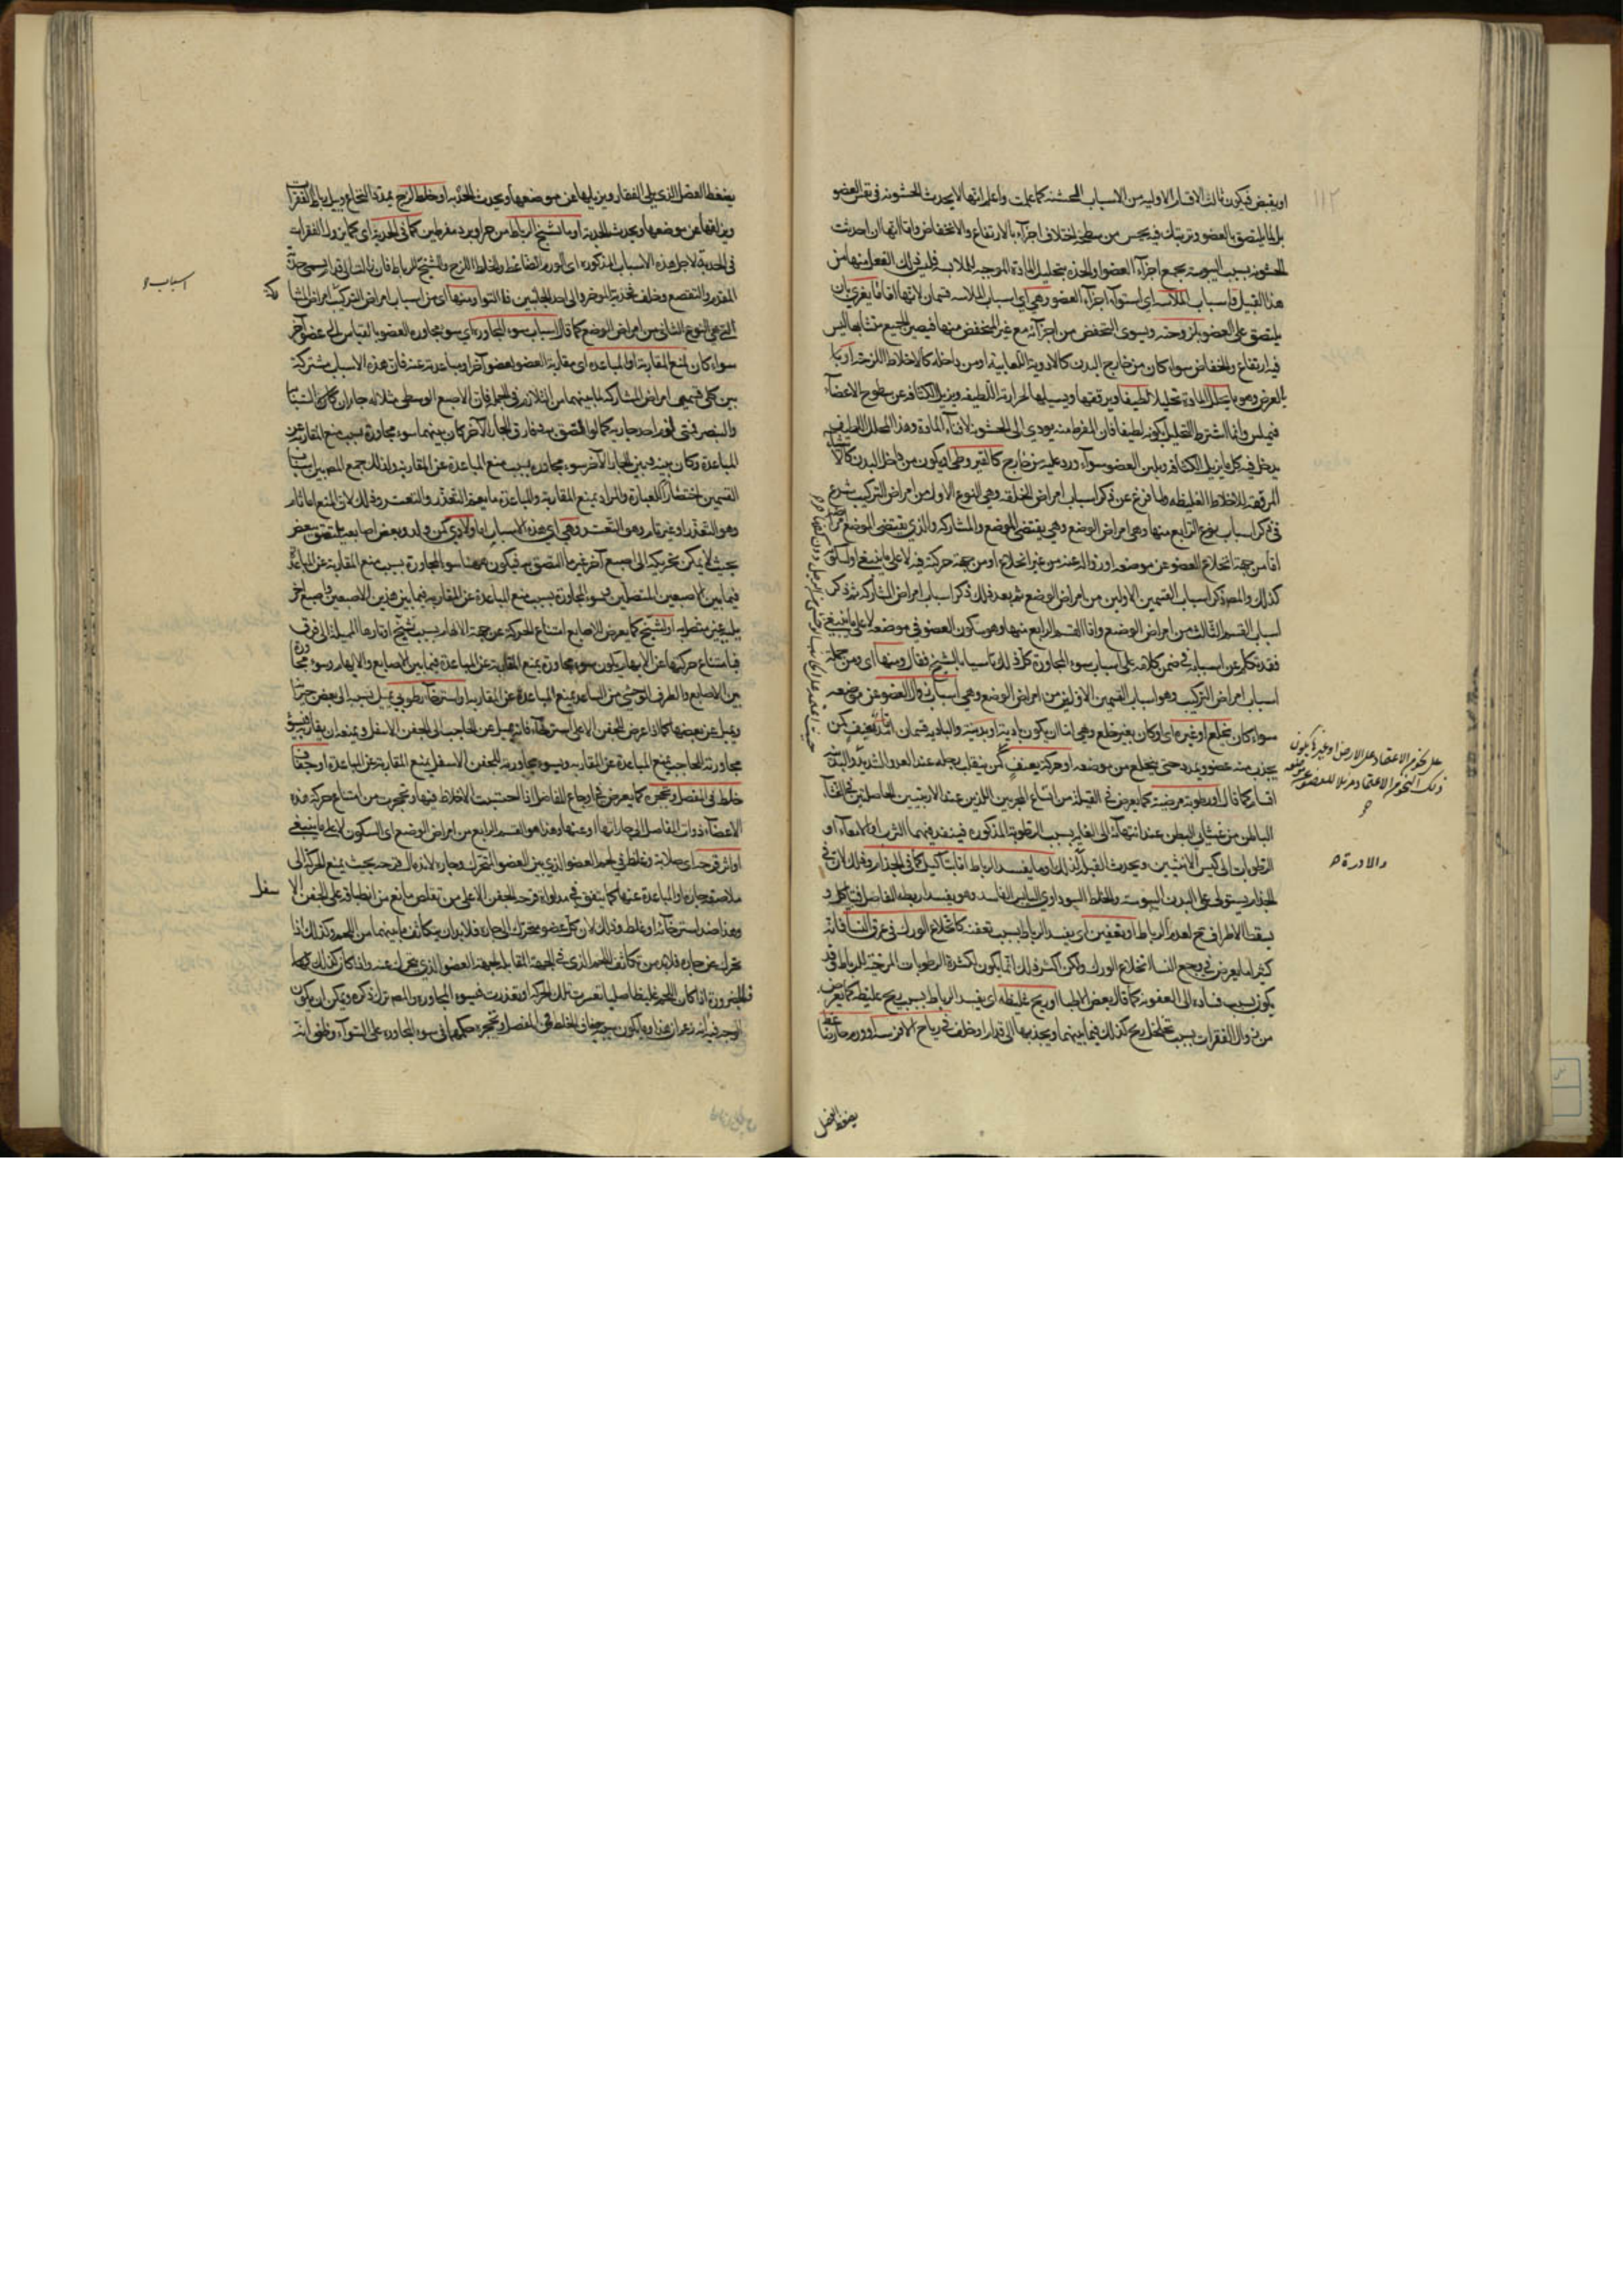 ١١٢
او يقبض فيكون ثالث الاقسام الاولية من الاسباب المخشنة كما علمت واعلم انها لا يحدث الخشونة في نفس العضو
بل لما يلتصق بالعضو من سطحه اختلاف اجزائه بالارتفاع والانخفاض وانما انها ان احدثت
الخشونة بسبب اليبوسة بجمع اجزاء العضو او الحدة بتحليل المادة الموجبة للملاسة فليس ذلك الفعل منها من
هذا القبيل واسباب الملاسة اي استواء اجزاء العضو وهي اي اسباب الملاسة قسمان لانها اما مغرٍ بان
يلتصق على العضو بلزوجته ويسوي المنخفض من اجزائه مع غير المنخفض منها فيصير الجميع متشابها ليس
فيه ارتفاع وانخفاض سواء كان من خارج البدن كالادوية اللعابية او من داخله كالاخلاط اللزجة او
بالعرض وهو ما يحلل المادة تحليلا لطيفا ويرققها ويسيلها لحرارته اللطيفة ويزيل الكثافة عن سطوح الاعضاء
فيملس وانما اشترط التحليل بكونه لطيفا فان المفرط منه يؤدي الى الخشونة لافناء المادة وهذا المحلل اللطيف
يدخل فيه كل ما يزيل الكثافة ويلين العضو سواء ورد عليه من خارج كالقيروطي او يكون من داخل البدن كالاشياء
المرققة للاخلاط الغليظة ولما فرغ عن ذكر اسباب امراض الخلقة وهي النوع الاول من امراض التركيب شرع
في ذكر اسباب نوع الرابع منها وهي امراض الوضع وهي يقتضي الموضع والمشاركة والذي يقتضي الموضع
اما من جهة انخلاع العضو عن موضعه او زواله عنه من غير انخلاع او من جهة حركته فيه لا على ما ينبغي او سكونه
كذلك والمص ذكر اسباب القسمين الاولين من امراض الوضع ثم بعد ذلك ذكر اسباب امراض المشاركة ثم ذكر
اسباب القسم الثالث من امراض الوضع واما القسم الرابع منها وهو سكون العضو في موضعه لا على ما ينبغي
فقد تكلم عن اسبابه في ضمن كلامه على اسباب سوء المجاورة كل ذلك تاسيا بالشيخ فقال ومنها اي ومن جملة
اسباب امراض التركيب وهو اسباب القسمين الاولين من امراض الوضع وهي اسباب زوال العضو عن موضعه
سواء كان بخلع او غيره اي او كان بغير خلع وهي اما ان يكون بادية او بدنية والبادية قسمان اما تمديد عنيف كمن
يجذب منه عضو ويمدد حتى ينخلع من موضعه او حركة بعنف كمن ينقلب رجله عند العدو الشديد والبدنية
اقسام كما قال او رطوبة مرخية كما يعرض في القيلة من اتساع المجريين اللذين عند الاربيتين الحاصلين في الغشاء
الباطن من غشائي البطن عند انتهائه الى الغلم بسبب الرطوبة المذكورة فينفذ فيهما الثرب او الامعاء او
الرطوبات الى كيس الانثيين ويحدث القيلة لذلك او ما يفسد الرباط اما بتاكيل كما في الجذام وذلك لان في
الجذام يستولي على البدن اليبوسة والخلط السوداوي اليابس الفاسد وهو يفسد اربطة المفاصل فيتاكل و
يسقط الاطراف ح لعدم الرباط او بتعفين اي يفسد الرباط بسبب تعفنه كانخلاع الورك في عرق النسا فانه
كثيرا ما يعرض في وجع النسا انخلاع الورك ولكن اكثر ذلك انما يكون لكثرة الرطوبات المرخية للرباط وقد
يكون بسبب فساده الى العفونة كما قال بعض الاطباء او ريح غليظة اي يفسد الرباط بسبب ريح غليظة كما يعرض
من زوال الفقرات بسبب تخلخل ريح كذلك فيما بينهما ويجذبها الى قدام او خلف في رياح الافرسة او ورم
على نحو من الاعتماد على الارض او غيره يكون
ذلك النحو من الاعتماد مزيلا للعضو عن موضعه
والادرة
يضغط العضل
يضغط العضل الذي يلي الفقار ويزيلها عن موضعها ويحدث الحدبة او خلط لزج يمدد النخاع ويبل رباط الفقرات
ويزلقها عن موضعها ويحدث الحدبة او ما تشنج الرباط من حر او برد مفرطين كما في الحدبة اي كما يزول الفقرات
في الحدبة لاجل هذه الاسباب المذكورة اي الورم الضاغط والخلط اللزج والتشنج للرباط فان مالت الى قدام يسمى حدبة
المقدم والتقصع وخلف حدبة المؤخر والى احد الجانبين فالالتواء ومنها اي من اسباب امراض التركيب امراض المشاركة
التي هي النوع الثاني من امراض الوضع كما قال اسباب سوء المجاورة اي سوء مجاورة العضو بالقياس الى عضو آخر
سواء كان لمنع المقاربة او المباعدة اي مقاربة العضو لعضو آخر او مباعدته عنه فان هذه الاسباب مشتركة
بين كلي قسمي امراض المشاركة لما بينهما من التلازم في الجملة فان الاصبع الوسطى مثلا له جاران كالسبابة
والبنصر فمتى لزم احد جاريه كما لو التصق به وفارق الجار الآخر كان بينهما سوء مجاورة بسبب منع المقاربة عن
المباعدة وكان بينه وبين الجار الآخر سوء مجاورة بسبب منع المباعدة عن المقاربة ولذلك جمع المص بين اسباب
القسمين اختصارا للعبارة والمراد بمنع المقاربة والمباعدة ما يعم التعذر والتعسر وذلك لان المنع اما تام
وهو التعذر او غير تام وهو التعسر وهي اي هذه الاسباب اما ولادي كمن ولد وبعض اصابعه ملتصق ببعض
بحيث لا يمكن تحريكه الى اصبع آخر غير ما التصق به فيكون ههنا سوء المجاورة بسبب منع المقاربة عن المباعدة
فيما بين الاصبعين المتصلين وسوء المجاورة بسبب منع المباعدة عن المقاربة فيما بين هذين الاصبعين واصبع آخر
يليه غير متصل به او تشنج كما يعرض للاصابع امتناع الحركة عن جهة الابهام بسبب تشنج اوتارها المميلة الى فوق
فبامتناع حركتها عن الابهام يكون سوء مجاورة بمنع المقاربة عن المباعدة فيما بين الاصابع والابهام وسوء مجاورة
بين الاصابع والطرف الوحشي من الساعد بمنع المباعدة عن المقاربة او استرخاء رطوبي يميل بسببه الى بعض جيرانه
ويميل عن بعضها كما اذا عرض للجفن الاعلى استرخاء فانه يميل عن الحاجب الى الجفن الاسفل ويمنعه ان يفارق فيسوء
مجاورته للحاجب بمنع المباعدة عن المقاربة ويسوء مجاورته للجفن الاسفل بمنع المقاربة عن المباعدة او جفاف
خلط في المفصل وتحجر كما يعرض في اوجاع المفاصل اذا احتبست الاخلاط فيها وتحجرت من امتناع حركة هذه
الاعضاء ذوات المفاصل الى جاراتها او عنها وهذا هو القسم الرابع من امراض الوضع اي السكون لا على ما ينبغي
او اثر قرحة اي صلابة وغلظ في لحم العضو الذي بين العضو المتحرك وجاره لاندمال قرحة بحيث يمنع الحركة الى
ملاصقة جاره او المباعدة عنه كما يتفق في مداواة قرحة الجفن الاعلى من تقلص مانع من انطباقه على الجفن الاسفل
وهذا ضد استرخائه او غلظ وذلك لان كل عضو يتحرك الى جاره فلا بد ان يتكاثف ما بينهما من اللحم وكذلك اذا
تحرك عن جاره فلا بد من تكاثف اللحم الذي في الجهة المقابلة لجهة العضو الذي يتحرك عنه واذا كان كذلك
فبالضرورة اذا كان اللحم غليظا صلبا تعسرت تلك الحركة او تعذرت فيسوء المجاورة والمص ترك ذكره ويمكن ان يكون
الوجه فيه انه زعم ان هذا وما يكون سببه جفاف الخلط في المفصل وتحجره حكمهما في سوء المجاورة على السواء وظني انه
اسباب